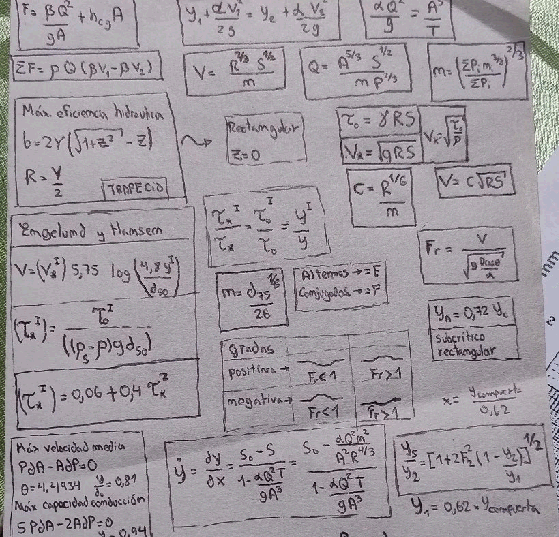 F = βQ²/gA + h_cg A
y₁ + αV₁²/2g = y₂ + αV₂²/2g
αQ²/g = A³/T
ΣF = ρQ(βV₁ - βV₂)
V = R^2/3 S^1/2 / m
Q = A^5/3 S^1/2 / m P^2/3
m = (ΣPᵢ m^3/2 / ΣPᵢ)^2/3
Máx. eficiencia hidraulica
b = 2Y(√1+z² - z)
R = Y/2
TRAPECIO
Rectangular
z = 0
τ₀ = γRS
V* = √gRS
V* = √τ₀/ρ
C = R^1/6 / m
V = C√RS
Engelund y Hansen
V = (V*ᴵ) 5,75 log(11,8yᴵ/d₅₀)
(τ*ᴵ) = τ₀ᴵ / ((ρs - ρ)g d₅₀)
(τ*ᴵ) = 0,06 + 0,4 τ*²
τ*ᴵ/τ* = τ₀ᴵ/τ₀ = yᴵ/y
m = d₇₅^1/6 / 26
Alternos → = E
Conjugados → = F
Fr = V / √g Dcosθ/α
yₙ = 0,72 yc
subcritico
rectangular
gradas
positiva → Fr<1 Fr>1
negativa → Fr<1 Fr>1
x = y compuerta / 0,62
Máx velocidad media
P∂A - A∂P = 0
θ = 4,4934 y/d₀ = 0,81
Máx capacidad conducción
5P∂A - 2A∂P = 0
y = 0,94
ẏ = ∂y/∂x = S₀ - S / 1 - αQ²T/gA³ = S₀ - Q²m²/A²R^4/3 / 1 - αQ²T/gA³
y₃/y₂ = [1 + 2F₂²(1 - y₂/y₁)]^1/2
y₁ = 0,62 * y compuerta